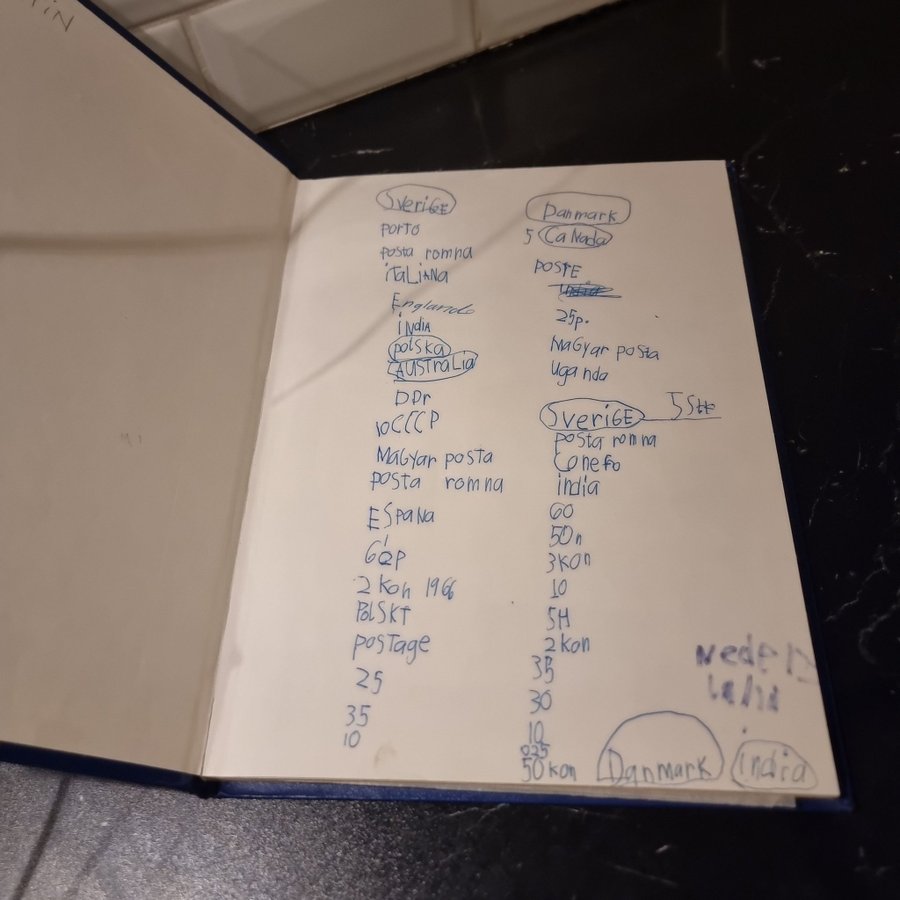 TiN
SveriGE
PORTO
Posta romna
iTaLiANa
Englando
iNDIA
polSka
AUSTRaLia
DDr
10CCCP
MaGyar posta
Posta romna
ESPaNa
2 Kon 1966
PolSKT
PosTage
25
35
10
Danmark
5 CaNada
POSTE
25p.
MaGyar posta
Uganda
SveriGE 5 St
Posta romna
india
60
50n
3kon
10
5H
2kon
35
30
10
025
50kon
Danmark
india